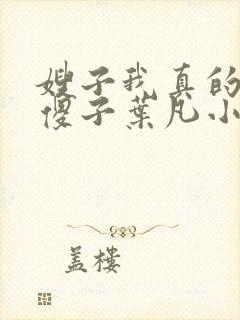 嫂子我真的
傻子葉凡小
蓋樓